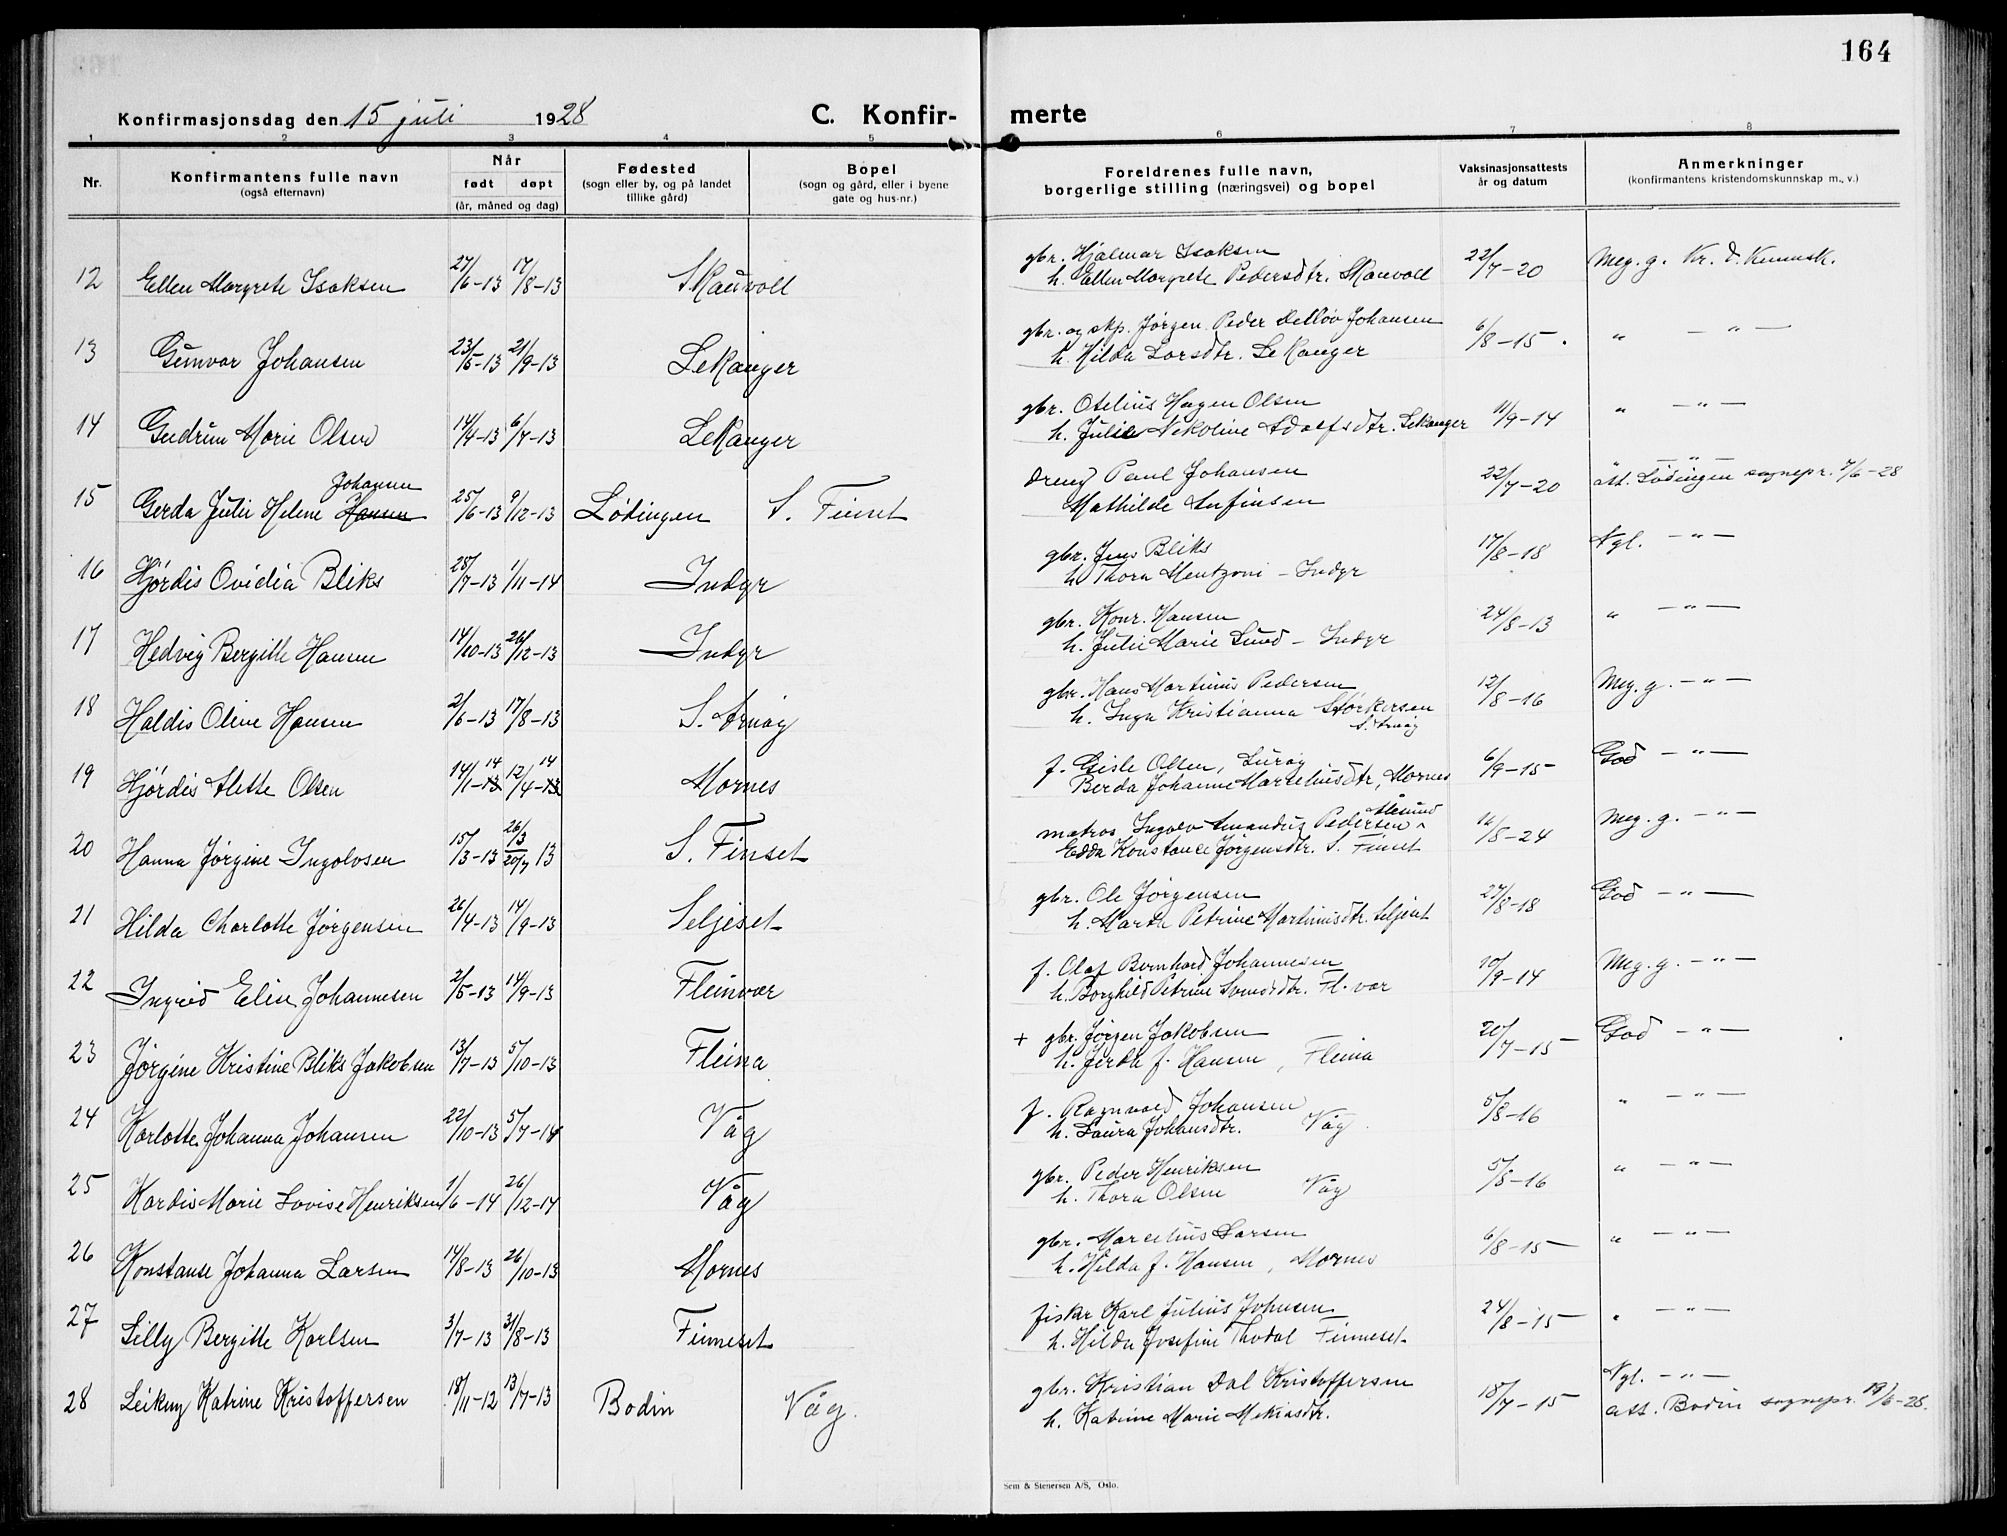 164
Konfirmasjonsdag den 15 juli 1928
C. Konfir- merte
1 2 3 4 5 6 7 8
Nr.
Konfirmantens fulle navn
(også efternavn)
Når
født døpt
(år, måned og dag)
Fødested
(sogn eller by, og på landet
tillike gård)
Bopel
(sogn og gård, eller i byene
gate og hus-nr.)
Foreldrenes fulle navn,
borgerlige stilling (næringsvei) og bopel
Vaksinasjonsattests
år og datum
Anmerkninger
(konfirmantens kristendomskunnskap m., v.)
12 Ellen Margrete Isaksen 27/6-13 17/8-13 Skauvoll
gbr. Hjalmar Isaksen
h. Ellen Margrete Pedersdtr. Skauvoll 22/7-20 Meg. g. Kr. d. Kunnsk.
13 Gunvor Johansen 23/5-13 21/9-13 Lekanger
gbr. og skp. Jørgen Peder Detlov Johansen
h. Hilda Larsdtr. Lekanger 6/8-15 " — " —
14 Gudrun Marie Olsen 14/4-13 6/7-13 Lekanger
gbr. Otelius Hagen Olsen
h. Julie Nekoline Adolfsdtr. Lekanger 11/9-14 " — " —
15 Gerda Julie Helene Hansen Johansen 25/6-13 9/12-13 Lødingen S. Finset
dreng Paul Johansen
Mathilde Anfinsen 22/7-20 — " —
att. Lødingen sognepr. 7/6-28
16 Hjørdis Ovidia Bliks 28/7-13 1/11-14 Indyr
gbr. Jens Bliks
h. Thora Mentzoni - Indyr 17/8-18 Ngl. — " —
17 Hedvig Bergitte Hansen 14/10-13 26/12-13 Indyr
gbr. Konr. Hansen
h. Julie Marie Lund - Indyr 24/8-13 " — " —
18 Haldis Oline Hansen 2/6-13 17/8-13 S. Arnøy
gbr. Hans Martinus Pedersen
h. Inga Kristianna Størkersen
S. Arnøy 12/8-16 Meg. g. — " —
19 Hjørdis Alette Olsen 14/1-13 14 12/4-13 14 Mornes
f. Gisle Olsen, Lurøy
Berda Johanne Marseliusdtr, Mornes 6/9-15 God — " —
20 Hanna Jørgine Ingolvsen 15/3-13 26/3 20/7 13 S. Finset
matros Ingolv Amandus Pedersen Ålesund
Edda Konstance Jørgensdtr. S. Finset 16/8-24 Meg. g. — " —
21 Hilda Charlotte Jørgensen 26/4-13 14/9-13 Seljeset
gbr. Ole Jørgensen
h. Marta Petrine Martinusdtr. Seljeset 27/8-18 God — " —
22 Ingrid Elise Johannesen 2/5-13 14/9-13 Fleinvær
f. Olaf Bernhard Johannesen
h. Borghild Petrine Svendsdtr. Fl. vær 10/9-14 Meg. g. — " —
23 Jørgine Kristine Bliks Jakobsen 13/7-13 5/10-13 Fleina
+ gbr. Jørgen Jakobsen
h. Jerda f. Hansen, Fleina 20/7-15 God — " —
24 Karlotte Johanna Johansen 22/10-13 5/7-14 Våg
f. Ragnvald Johansen
h. Laura Johansdtr. Våg 5/8-16 " — " —
25 Kardis Marie Lovise Henriksen 1/6-14 26/12-14 Våg
gbr. Peder Henriksen
h. Thora Olsen Våg 5/8-16 " — " —
26 Konstanse Johanna Larsen 14/8-13 26/10-13 Mornes
gbr. Marcelius Larsen
h. Hilda f. Hansen, Mornes 6/8-15 " — " —
27 Lilly Bergitte Karlsen 3/7-13 31/8-13 Finneset
fiskr Karl Julius Johnsen
h. Hilda Josefine Thodal Finneset 24/8-15 " — " —
28 Leikny Katrine Kristoffersen 18/11-12 13/7-13 Bodin Våg.
gbr. Kristian Dal Kristoffersen
h. Katrine Marie Mekiasdtr. 18/7-15 Ngl. — " —
att. Bodin sognepr. 19/6-28.
Sem & Stenersen A/S, Oslo.